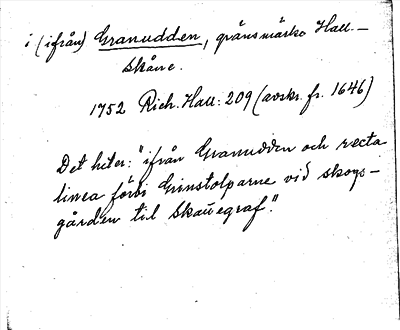 i (ifrån) Granudden, gränsmärke Hall. –
Skåne.
1752 Rich. Hall: 209 (avskr. fr. 1646)
Det heter: "ifrån Granudden och recta
linea förbi Grinstolparne vid skogs-
gården til Skauegraf".